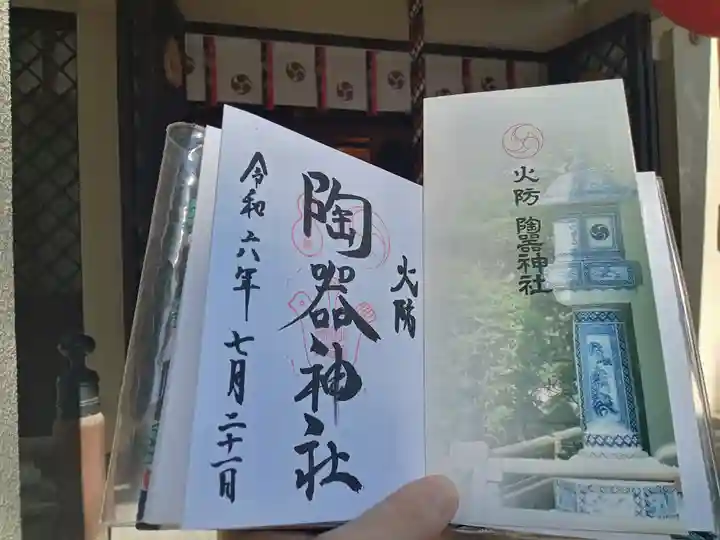 火防
陶器神社
令和六年七月二十一日
火防 陶器神社